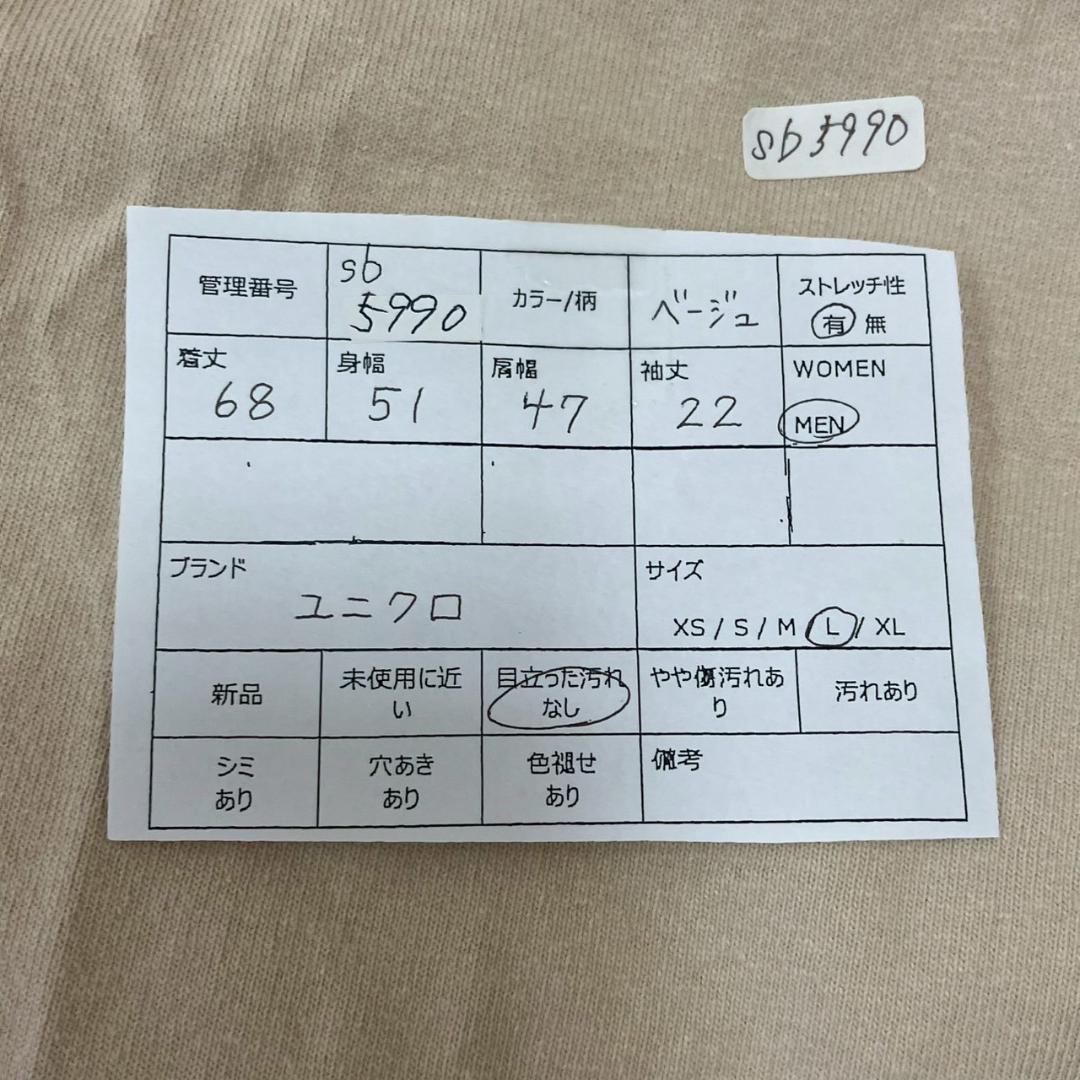 sb5990
管理番号
sb
5990
カラー/柄
ベージュ
ストレッチ性
有 無
着丈
68
身幅
51
肩幅
47
袖丈
22
WOMEN
MEN
ブランド
ユニクロ
サイズ
XS / S / M / L / XL
新品
未使用に近
い
目立った汚れ
なし
やや傷汚れあ
り
汚れあり
シミ
あり
穴あき
あり
色褪せ
あり
備考